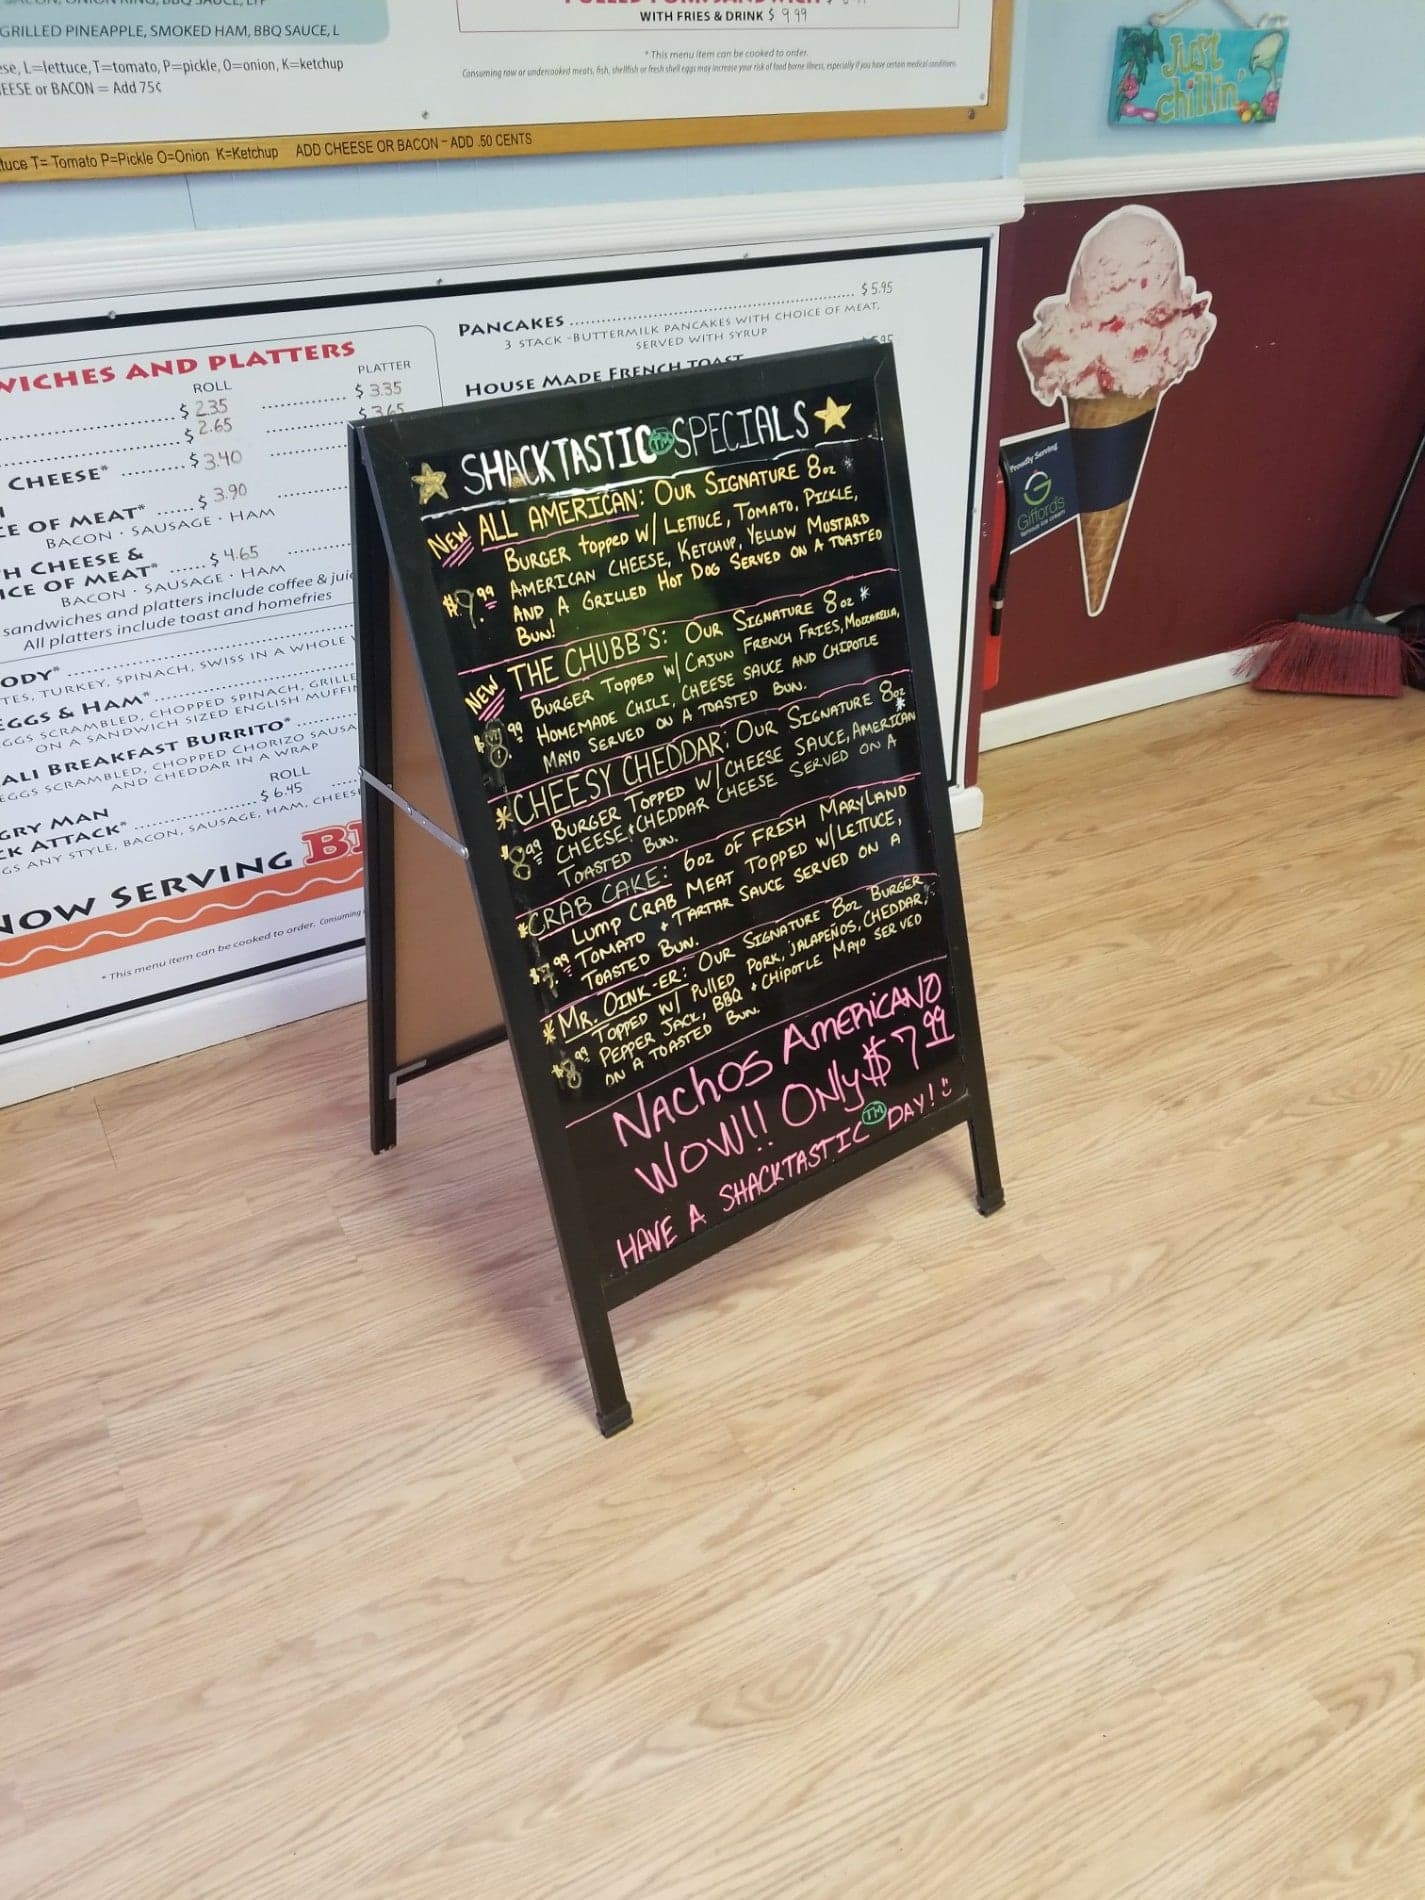 GRILLED PINEAPPLE, SMOKED HAM, BBQ SAUCE, L
L=lettuce, T=tomato, P=pickle, O=onion, K=ketchup
or BACON = Add 75¢
WITH FRIES & DRINK $ 9.99
* This menu item can be cooked to order.
Consuming raw or undercooked meats, fish, shellfish or fresh shell eggs may increase your risk of food borne illness, especially if you have certain medical conditions.
T= Tomato P=Pickle O=Onion K=Ketchup ADD CHEESE OR BACON - ADD .50 CENTS
Just
chillin'
AND PLATTERS
ROLL PLATTER
$ 2.35 $ 3.35
$ 2.65 $ 3.65
CHEESE* $ 3.40
OF MEAT* $ 3.90
BACON • SAUSAGE • HAM
CHEESE &
OF MEAT* $ 4.65
BACON • SAUSAGE • HAM
sandwiches and platters include coffee &
All platters include toast and homefries
TURKEY, SPINACH, SWISS IN A WHOLE
& HAM*
SCRAMBLED, CHOPPED SPINACH,
ON A SANDWICH SIZED ENGLISH
BREAKFAST BURRITO*
EGGS SCRAMBLED, CHOPPED CHORIZO
AND CHEDDAR IN A WRAP
ROLL
MAN $ 6.45
ATTACK*
ANY STYLE, BACON, SAUSAGE, HAM,
NOW SERVING
* This menu item can be cooked to order. Consuming
PANCAKES $ 5.95
3 STACK -BUTTERMILK PANCAKES WITH CHOICE OF MEAT,
SERVED WITH SYRUP
HOUSE MADE FRENCH TOAST
SHACKTASTIC TM SPECIALS
NEW ALL AMERICAN: OUR SIGNATURE 8oz *
BURGER TOPPED W/ LETTUCE, TOMATO, PICKLE,
$9.99 AMERICAN CHEESE, KETCHUP, YELLOW MUSTARD
AND A GRILLED HOT DOG SERVED ON A TOASTED
BUN!
NEW THE CHUBB'S: OUR SIGNATURE 8oz *
BURGER TOPPED W/ CAJUN FRENCH FRIES, MOZZARELLA,
HOMEMADE CHILI, CHEESE SAUCE AND CHIPOTLE
MAYO SERVED ON A TOASTED BUN.
*CHEESY CHEDDAR: OUR SIGNATURE 8oz *
BURGER TOPPED W/ CHEESE SAUCE, AMERICAN
$8.99 CHEESE + CHEDDAR CHEESE SERVED ON A
TOASTED BUN.
*CRAB CAKE: 6oz OF FRESH MARYLAND
LUMP CRAB MEAT TOPPED W/ LETTUCE,
TOMATO + TARTAR SAUCE SERVED ON A
TOASTED BUN.
*MR. OINK-ER: OUR SIGNATURE 8oz BURGER
TOPPED W/ PULLED PORK, JALAPEÑOS, CHEDDAR,
$8.99 PEPPER JACK, BBQ + CHIPOTLE MAYO SERVED
ON A TOASTED BUN.
NACHOS AMERICANO
WOW!! ONLY $7.99
HAVE A SHACKTASTIC TM DAY!
Proudly Serving
Gifford's